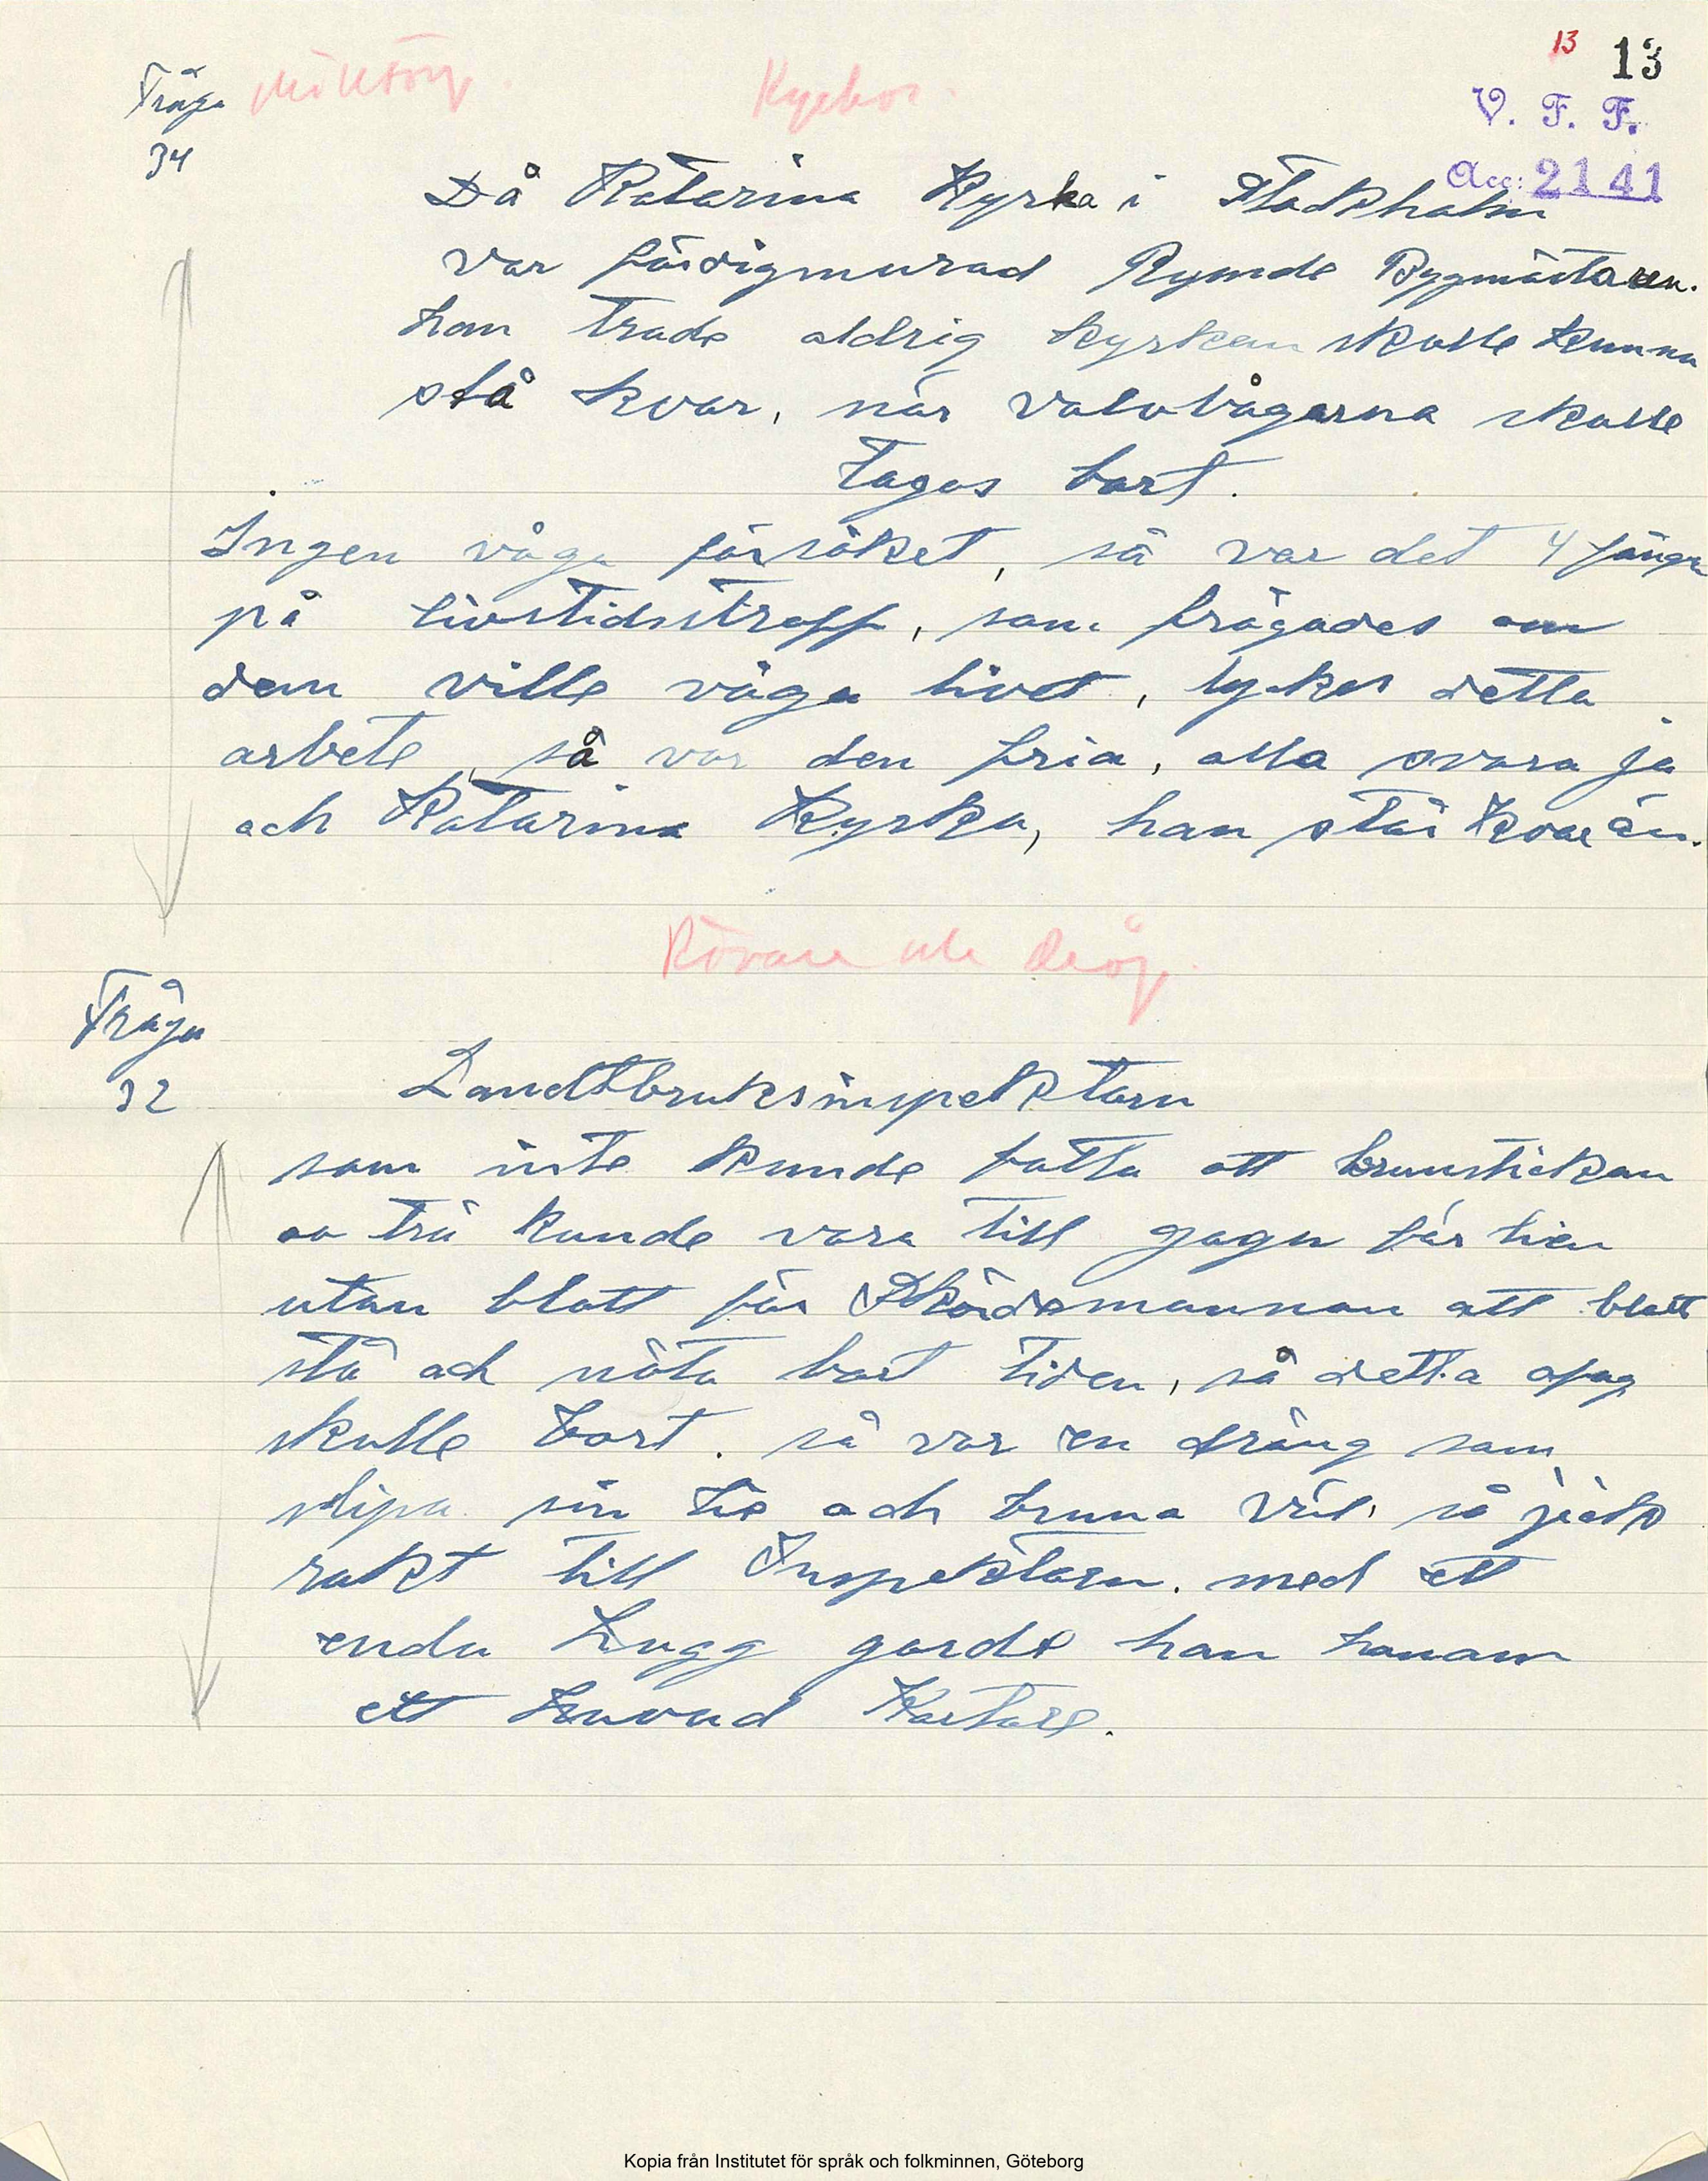 13 13
Fråga Mölltorp. Kyrkor.
V. F. F.
34
Acc: 2141
Då Katarina Kyrka i Stockholm
var färdigmurad Rymde Bygmästaren.
han trode aldrig kyrkan skulle kunna
stå kvar, när valvbågarna skulle
tagas bort.
Ingen våga försöket, så var det 4 fånga
på livstidsstraff, som frågades om
dem ville våga livet, lyckes detta
arbete, så var den fria, alla svara ja
och Katarina Kyrka, han står kvar än.
Rövare och dråp.
Fråga
32
Landtbruksinspektorn
som inte kunde fatta att brunstickan
av trä kunde vara till gagn för lien
utan blott för Skördemannen att blott
stå och nöta bort tiden, så detta
skulle bort. så var en dräng som
slipa sin lie och bruna väl, så
rakt till Inspektorn. med ett
enda hugg gorde han honom
ett huvud kortare.
Kopia från Institutet för språk och folkminnen, Göteborg